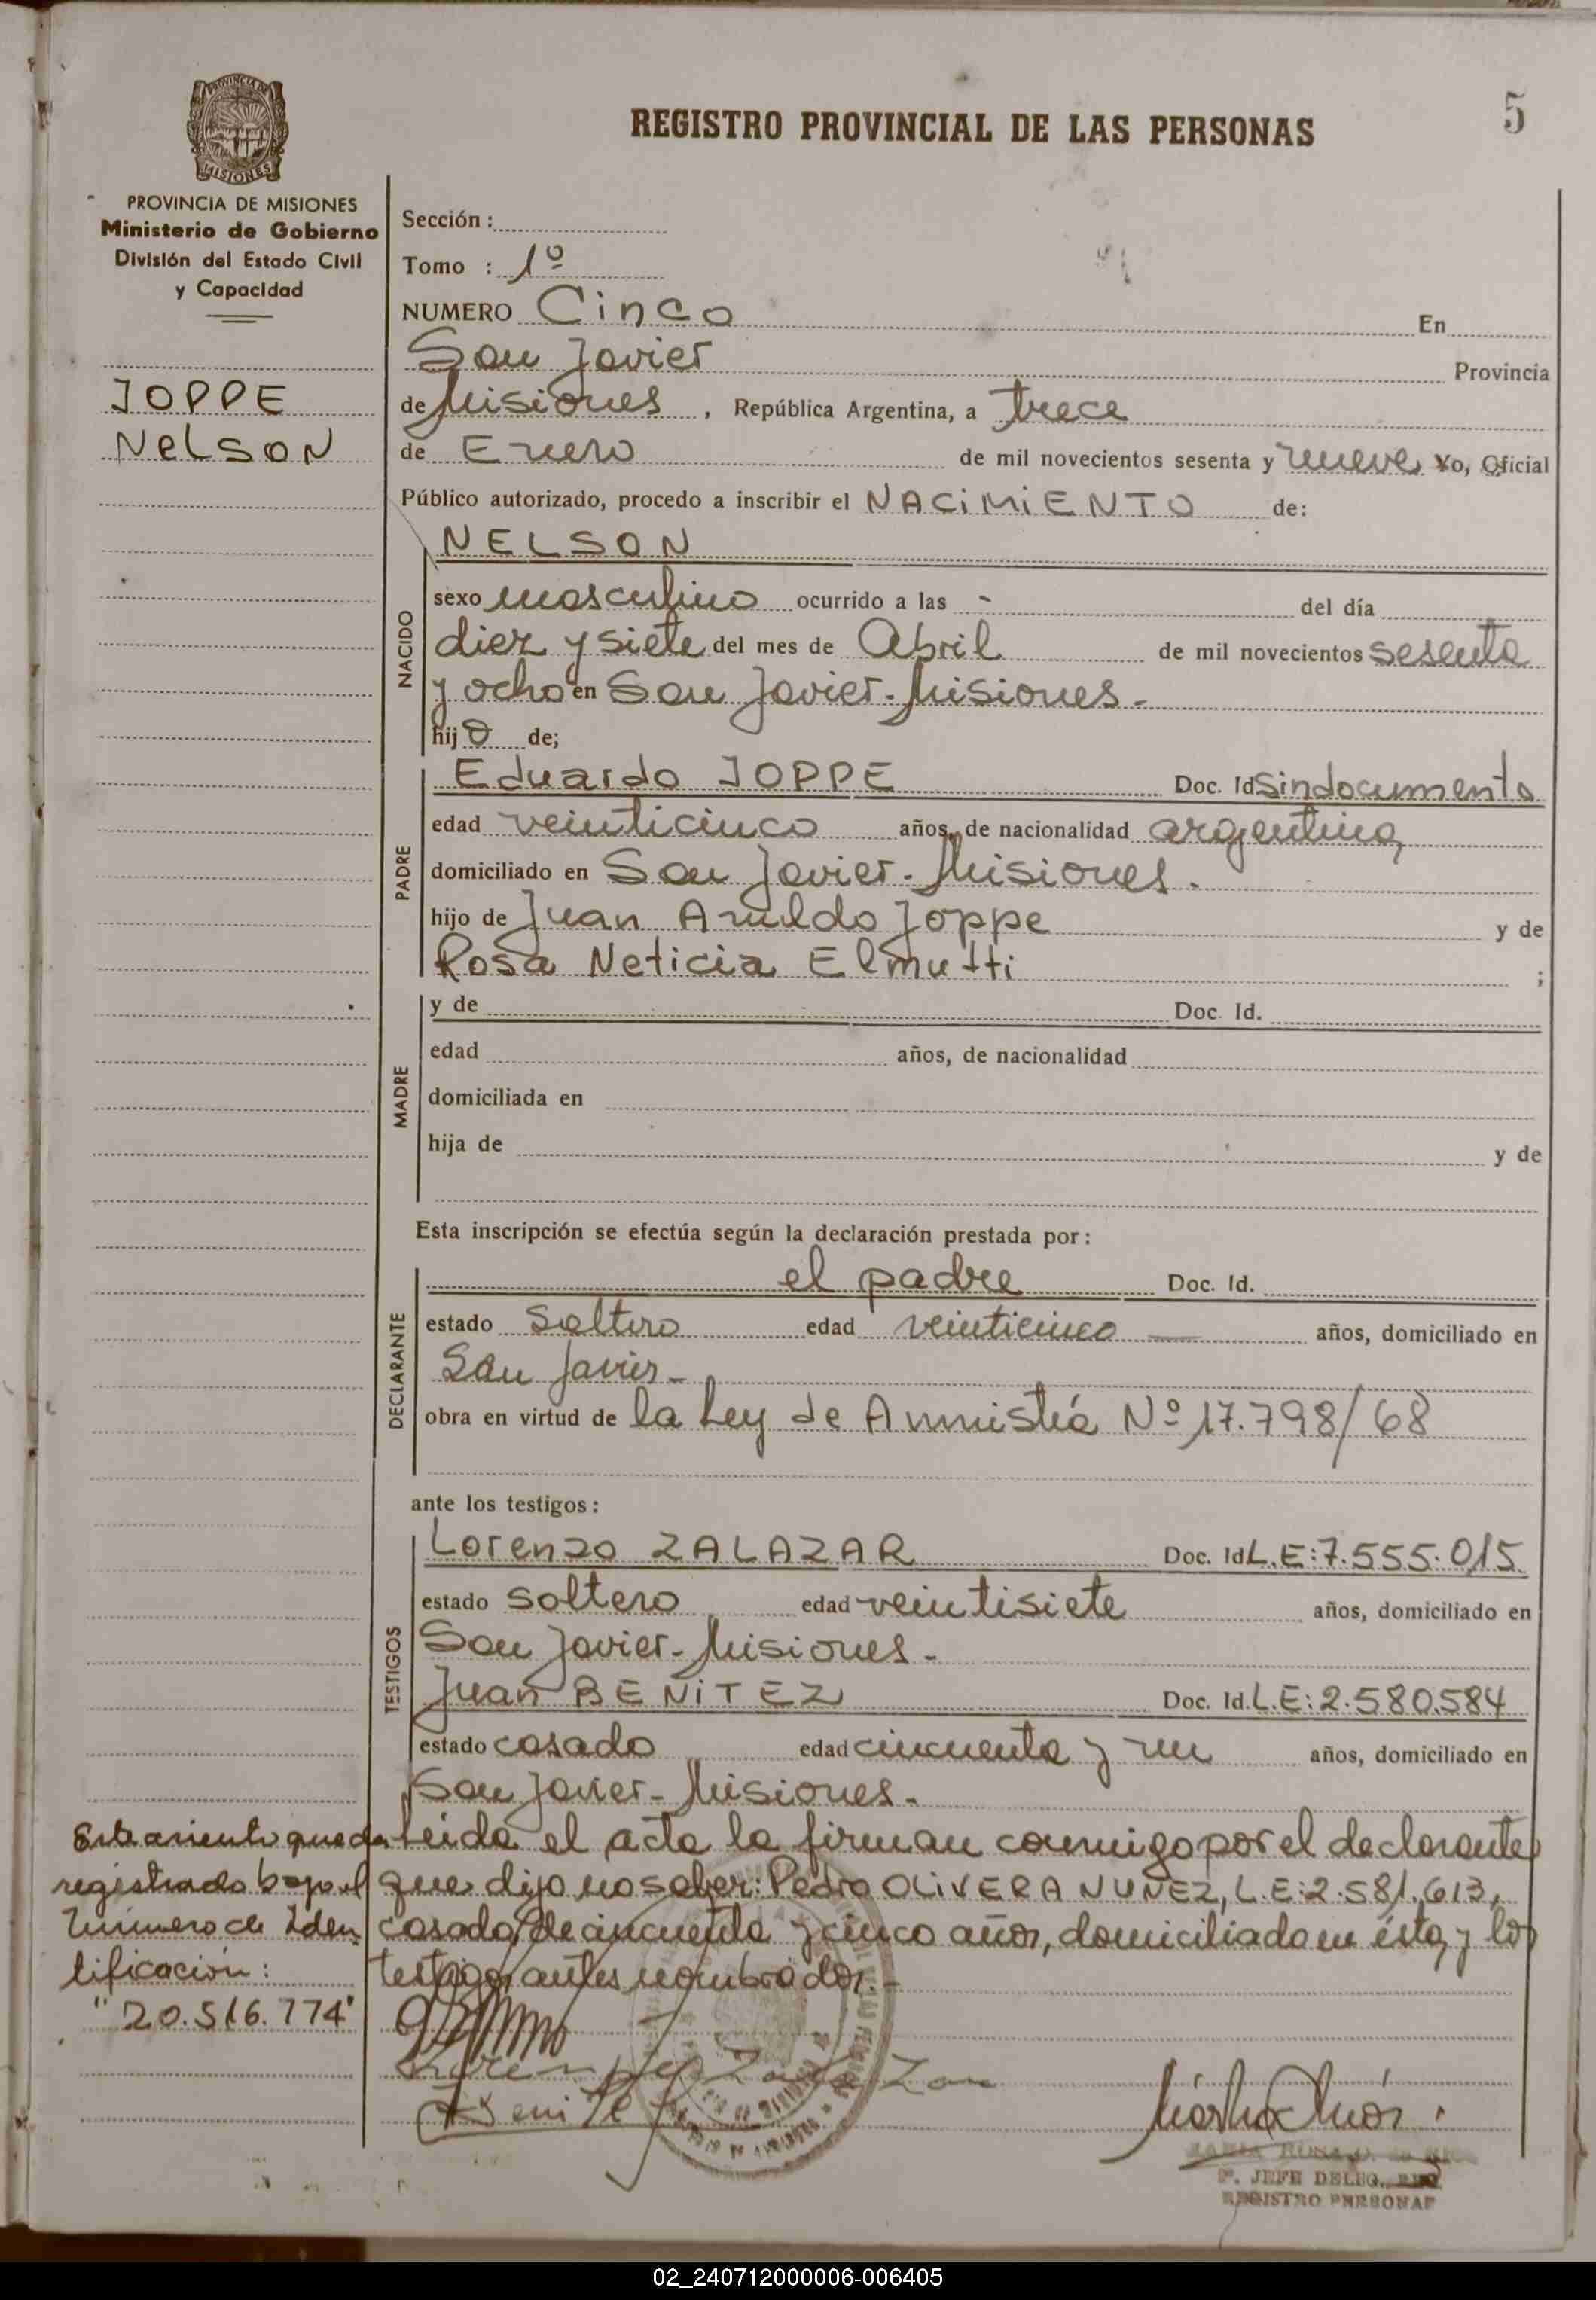 5
REGISTRO PROVINCIAL DE LAS PERSONAS
PROVINCIA DE MISIONES
Ministerio de Gobierno
División del Estado Civil
y Capacidad
JOPPE
NELSON
Sección :
Tomo : 1º
NUMERO Cinco En
San Javier Provincia
de Misiones, República Argentina, a trece
de Enero de mil novecientos sesenta y nueve Yo, Oficial
Público autorizado, procedo a inscribir el NACIMIENTO de:
NACIDO
NELSON
sexo masculino ocurrido a las - del día
diez y siete del mes de Abril de mil novecientos sesenta
y ocho en San Javier - Misiones -
hijo de;
PADRE
Eduardo JOPPE Doc. Id Sin documento
edad veinticinco años, de nacionalidad argentina
domiciliado en San Javier - Misiones.
hijo de Juan Arnildo Joppe y de
Rosa Neticia Elmutti ;
MADRE
y de Doc. Id.
edad años, de nacionalidad
domiciliada en
hija de y de
Esta inscripción se efectúa según la declaración prestada por :
DECLARANTE
el padre Doc. Id.
estado Soltero edad veinticinco — años, domiciliado en
San Javier -
obra en virtud de la Ley de Amnistía Nº 17.798/68
ante los testigos :
TESTIGOS
Lorenzo ZALAZAR Doc. Id L.E: 7.555.015
estado soltero edad veintisiete años, domiciliado en
San Javier - Misiones -
Juan BENITEZ Doc. Id. L.E: 2.580.584
estado casado edad cincuenta y un años, domiciliado en
San Javier - Misiones -
Leida el acta la firman conmigo por el declarante
que dijo no saber: Pedro OLIVERA NUÑEZ, L.E: 2.581.613,
casado, de cincuenta y cinco años, domiciliado en ésta, y los
testigos antes nombrados. -
Este asiento queda
registrado bajo el
Número de Iden
tificación:
"20.516.774"
Benitez
JEFE DELEG.
REGISTRO PERSONAS
02_240712000006-006405